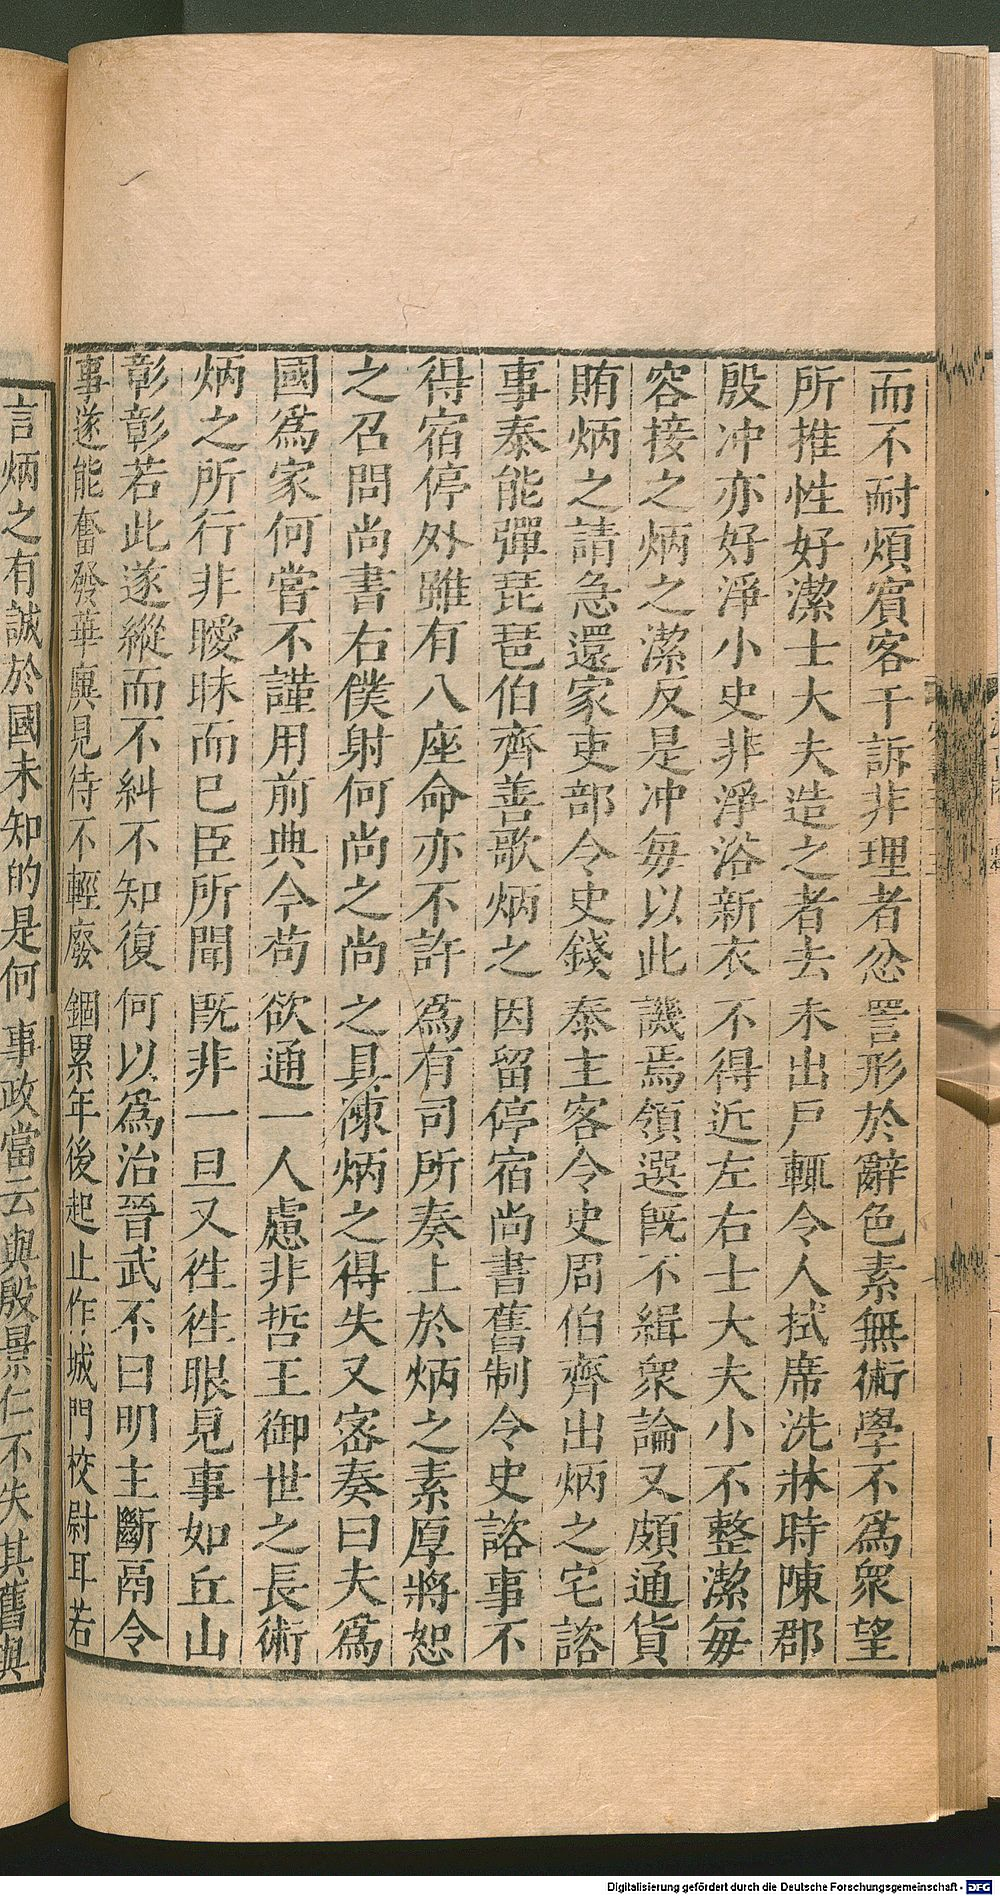 而不耐煩賓客干訴非理者忿詈形於辭色素無術學不爲衆望
所推性好潔士大夫造之者去未出戶輒令人拭席洗牀時陳郡
殷冲亦好淨小史非淨浴新衣不得近左右士大夫小不整潔每
容接之炳之潔反是冲每以此譏焉領選旣不緝衆論又頗通貨
賄炳之請急還家吏部令史錢泰主客令史周伯齊出炳之宅諮
事泰能彈琵琶伯齊善歌炳之因留停宿尚書舊制令史諮事不
得宿停外雖有八座命亦不許爲有司所奏上於炳之素厚將恕
之召問尚書右僕射何尚之尚之具陳炳之得失又密奏曰夫爲
國爲家何嘗不謹用前典今苟欲通一人慮非哲王御世之長術
炳之所行非曖昧而已臣所聞旣非一旦又徃徃眼見事如丘山
彰彰若此遂縱而不糾不知復何以爲治晉武不曰明主斷鬲令
事遂能奮發華廙見待不輕廢錮累年後起止作城門校尉耳若
言炳之有誠於國未知的是何事政當云與殷景仁不失其舊與
Digitalisierung gefördert durch die Deutsche Forschungsgemeinschaft - DFG